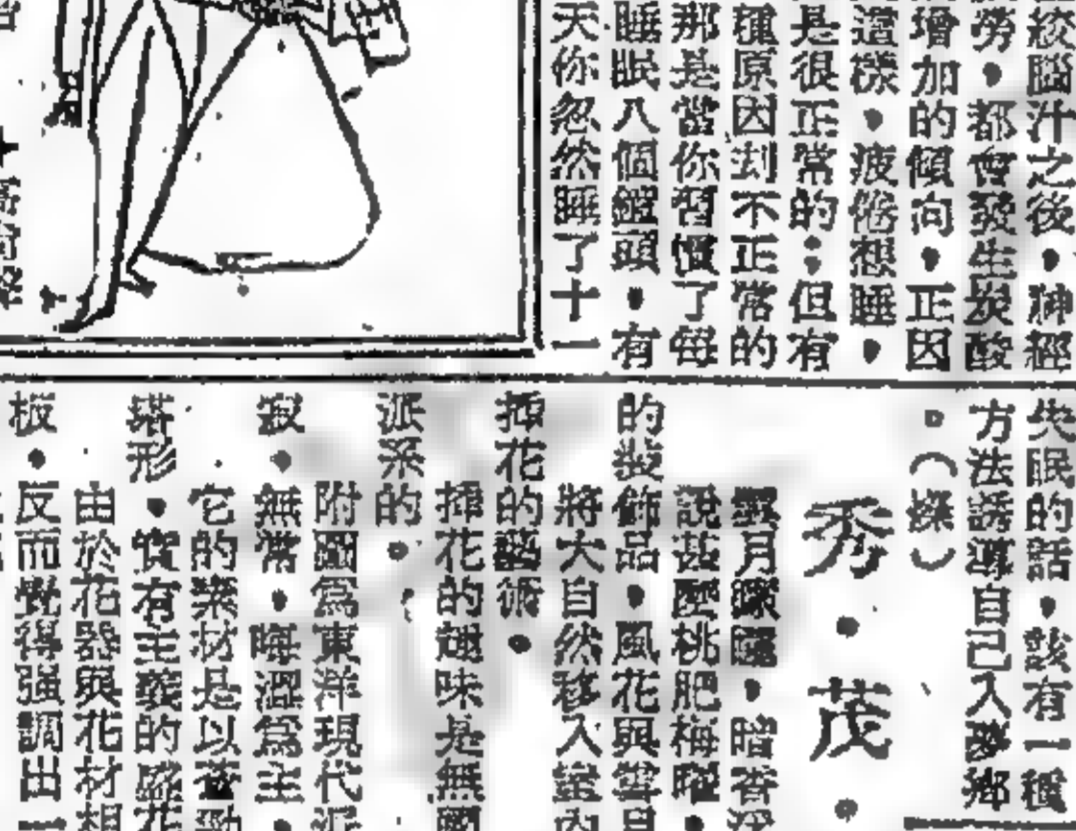 絞腦汁之後，神經
傍，都會發生炭酸
增加的傾向，正因
這樣，疲倦想睡，
是很正常的；但有
種原因則不正常的
那是當你習慣了每
睡眠八個鐘頭，有
天你忽然睡了十一
失眠的話，該有一種
方法誘導自己入夢鄉
。（燦）
秀・茂・
雲月朦朧，暗香浮
說甚麼桃肥梅瘦，
的裝飾品，風花與雪月
將大自然移入室內
插花的藝術，
插花的趣味是無國
派系的。
附圖為東洋現代派
寂，無常，晦澀為主，
它的素材是以蒼勁
塔形，實有主義的盛花
由於花器與花材相
板，反而覺得強調出一